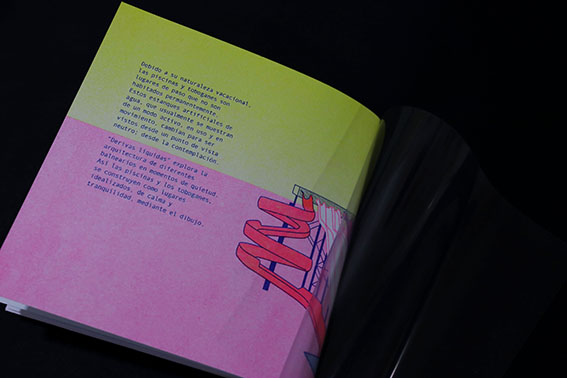 Debido a su naturaleza vacacional,
las piscinas y toboganes son
lugares de paso que no son
habitados permanentemente.
Estos estanques artificiales de
agua, que usualmente se muestran
de un modo activo, en uso y en
movimiento, cambian para ser
vistos desde un punto de vista
neutro; desde la contemplación.
"Derivas líquidas" explora la
arquitectura de diferentes
balnearios en momentos de quietud.
Así las piscinas y los toboganes,
se construyen como lugares
idealizados, de calma y
tranquilidad, mediante el dibujo.